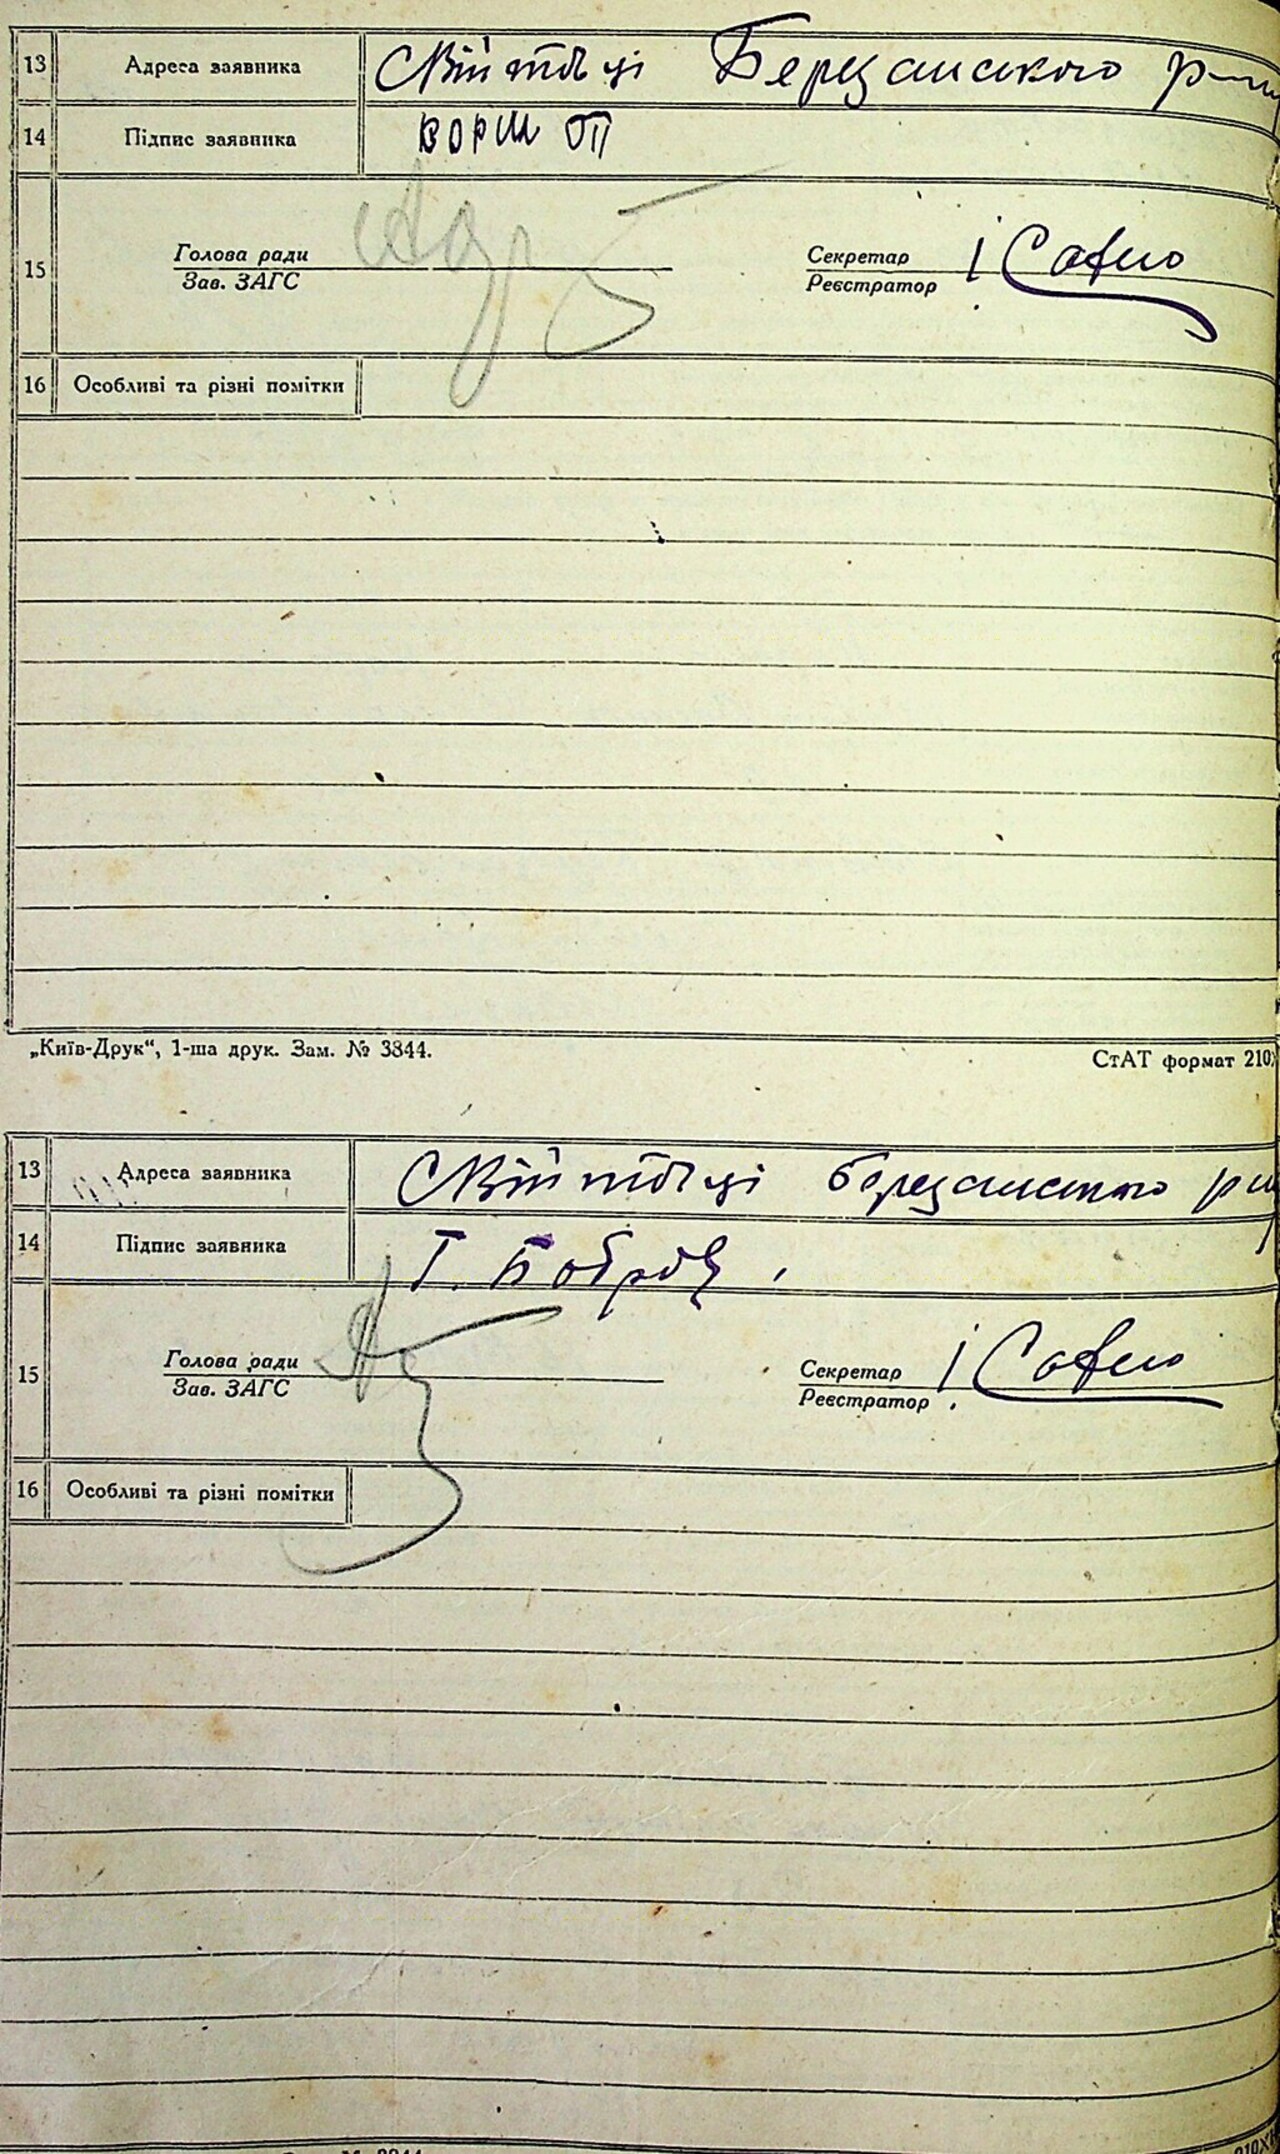 13 Адреса заявника Війтовці Березанського р-ну
14 Підпис заявника ворш оп
15 Голова ради Секретар
Зав. ЗАГС Реєстратор
16 Особливі та різні помітки
„Київ-Друк“, 1-ша друк. Зам. № 3844. СтАТ формат 210
13 Адреса заявника Війтовці Березанського
14 Підпис заявника Г. Бобров
15 Голова ради Секретар
Зав. ЗАГС Реєстратор
16 Особливі та різні помітки